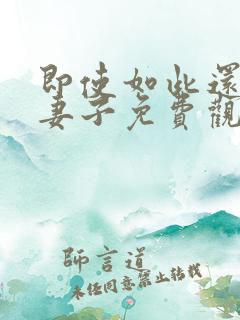 即使如此還
妻子免費觀
師言道
未经同意禁止转载